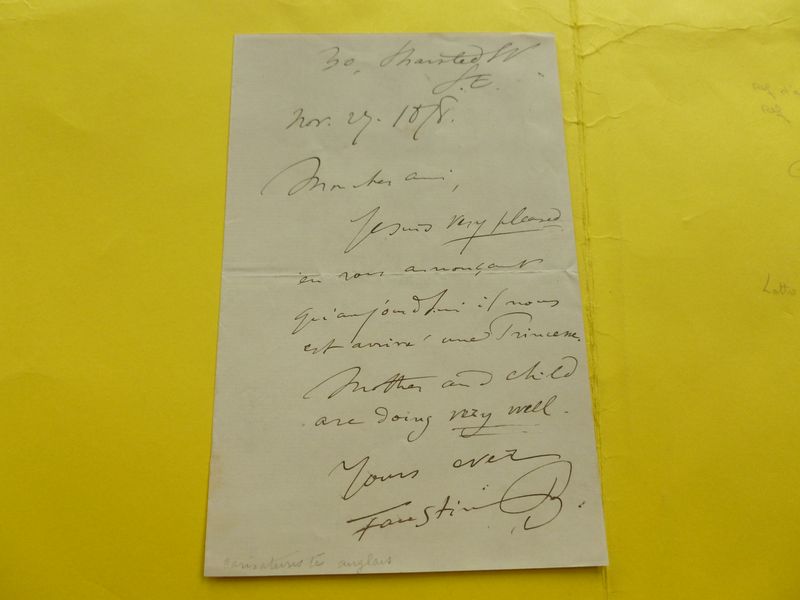 30, Sharsted St
S.E.
Nov. 27. 1878.
Mon cher ami,
Je suis very pleased
en vous annonçant
qu'aujourd'hui il nous
est arrivé une Princesse.
Mother and child
are doing very well.
Yours ever
Faustin B.
caricaturiste anglais